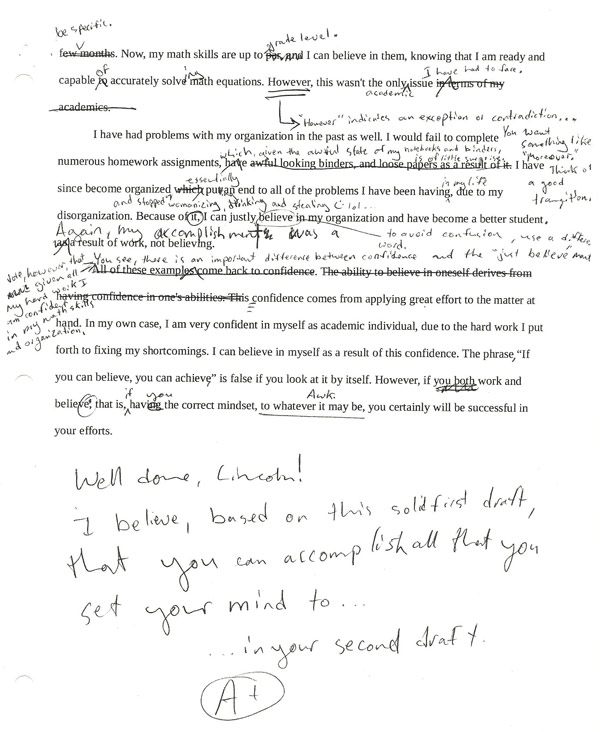 be specific.
grade level.
few months. Now, my math skills are up to par, and I can believe in them, knowing that I am ready and
of
ing
I have had to face.
capable to accurately solve math equations. However, this wasn't the only issue in terms of my
academic
academics.
"However" indicates an exception or contradiction...
I have had problems with my organization in the past as well. I would fail to complete
You want something like "Moreover." Think of a good transition.
which, given the awful state of my notebooks and binders, is of little surprise.
numerous homework assignments, have awful looking binders, and loose papers as a result of it. I have
essentially
in my life
since become organized which put an end to all of the problems I have been having, due to my
and stopped womanizing, thinking and stealing
disorganization. Because of it, I can justly believe in my organization and have become a better student,
Again, my accomplishments was a
to avoid confusion, use a different word.
as a result of work, not believing.
You see, there is an important difference between confidence and the "just believe"
Note, however, that given all my hard work I am confident in my math skills and organization.
All of these examples come back to confidence. The ability to believe in oneself derives from
having confidence in one's abilities. This confidence comes from applying great effort to the matter at
hand. In my own case, I am very confident in myself as academic individual, due to the hard work I put
forth to fixing my shortcomings. I can believe in myself as a result of this confidence. The phrase, "If
you can believe, you can achieve" is false if you look at it by itself. However, if you both work and
if you
Awk.
believe, that is, having the correct mindset, to whatever it may be, you certainly will be successful in
your efforts.
Well done, Lincoln!
I believe, based on this solid first draft,
that you can accomplish all that you
set your mind to...
...in your second draft.
A+